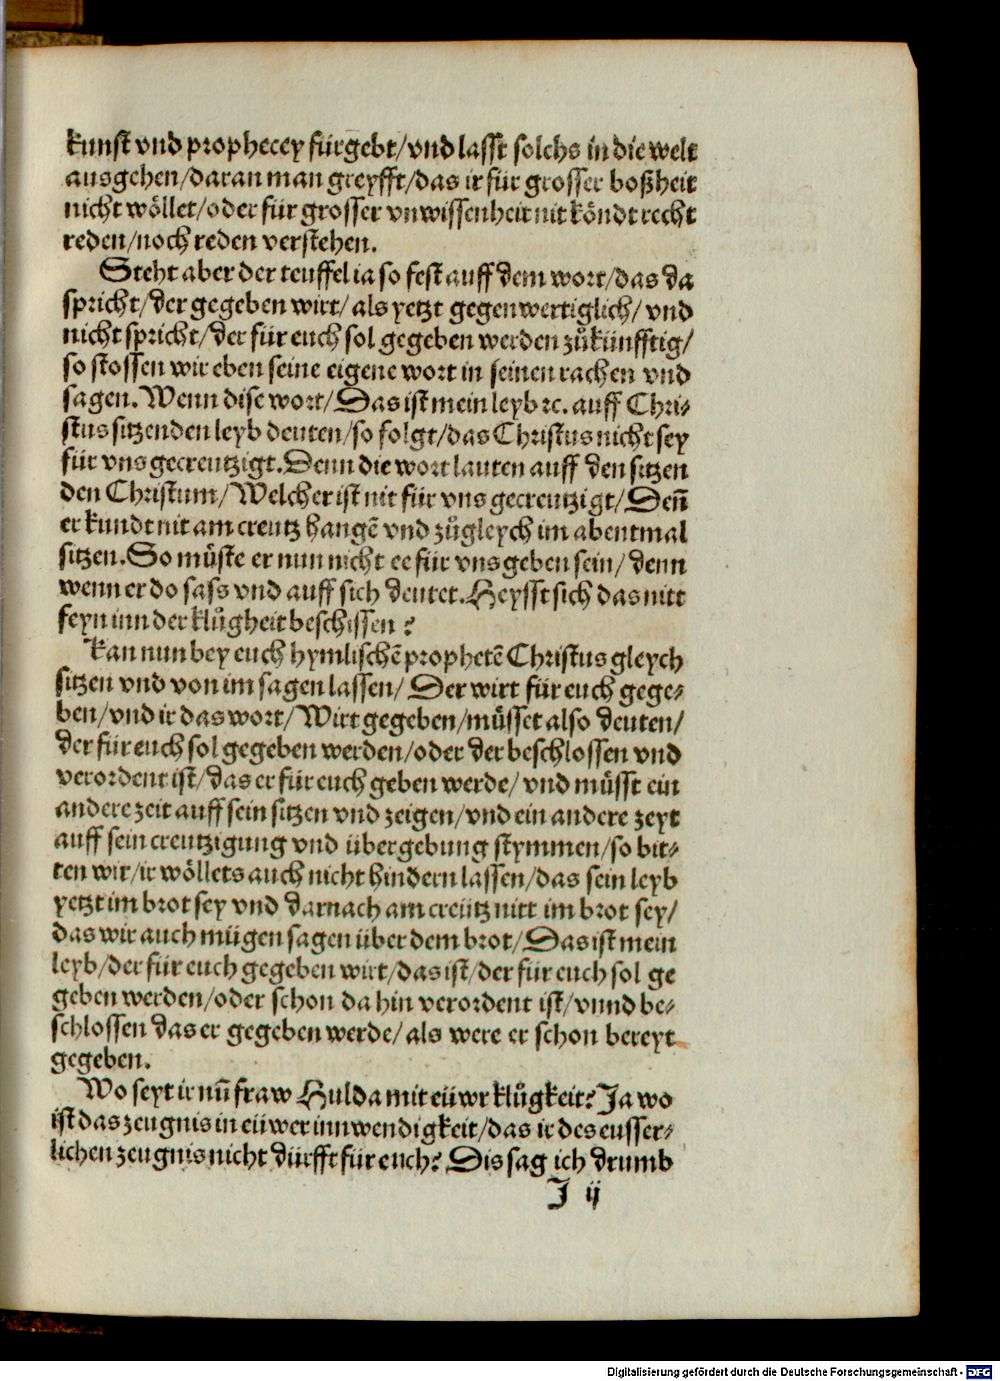 kunst vnd prophecey fürgebt/vnd lasst solchs in die welt
ausgehen/daran man greyfft/das ir für grosser boßheit
nicht wöllet/oder für grosser vnwissenheit nit köndt recht
reden/noch reden verstehen.
Steht aber der teuffel ia so fest auff dem wort/das da
spricht/der gegeben wirt/als yetzt gegenwertiglich/vnd
nicht spricht/der für euch sol gegeben werden zůkünfftig/
so stossen wir eben seine eigene wort in seinen rachen vnd
sagen. Wenn dise wort/Das ist mein leyb ꝛc. auff Chri⸗
stus sitzenden leyb deuten/so folgt/das Christus nicht sey
für vns gecreutzigt. Denn die wort lauten auff den sitzen
den Christum/Welcher ist nit für vns gecreutzigt/Deñ
er kundt nit am creutz hangē vnd zůgleych im abentmal
sitzen. So müste er nun nicht ee für vns geben sein/denn
wenn er do sass vnd auff sich deutet. Heysst sich das nitt
feyn inn der klůgheit beschissen?
Kan nun bey euch hymlischē prophetē Christus gleych
sitzen vnd von im sagen lassen/Der wirt für euch gege⸗
ben/vnd ir das wort/Wirt gegeben/müsset also deuten/
der für euch sol gegeben werden/oder der beschlossen vnd
verordent ist/das er für euch geben werde/vnd müsst ein
andere zeit auff sein sitzen vnd zeigen/vnd ein andere zeyt
auff sein creutzigung vnd übergebung stymmen/so bit⸗
ten wir/ir wöllets auch nicht hindern lassen/das sein leyb
yetzt im brot sey vnd darnach am creütz nitt im brot sey/
das wir auch mügen sagen über dem brot/Das ist mein
leyb/der für euch gegeben wirt/das ist/der für euch sol ge
geben werden/oder schon da hin verordent ist/vnnd be⸗
schlossen das er gegeben werde/als were er schon bereyt
gegeben.
Wo seyt ir nuñ fraw Hulda mit eüwr klůgkeit? Ja wo
ist das zeugnis in eüwer innwendigkeit/das ir des eusser⸗
lichen zeugnis nicht dürfft für euch? Dis sag ich drumb
J ij
Digitalisierung gefördert durch die Deutsche Forschungsgemeinschaft - DFG